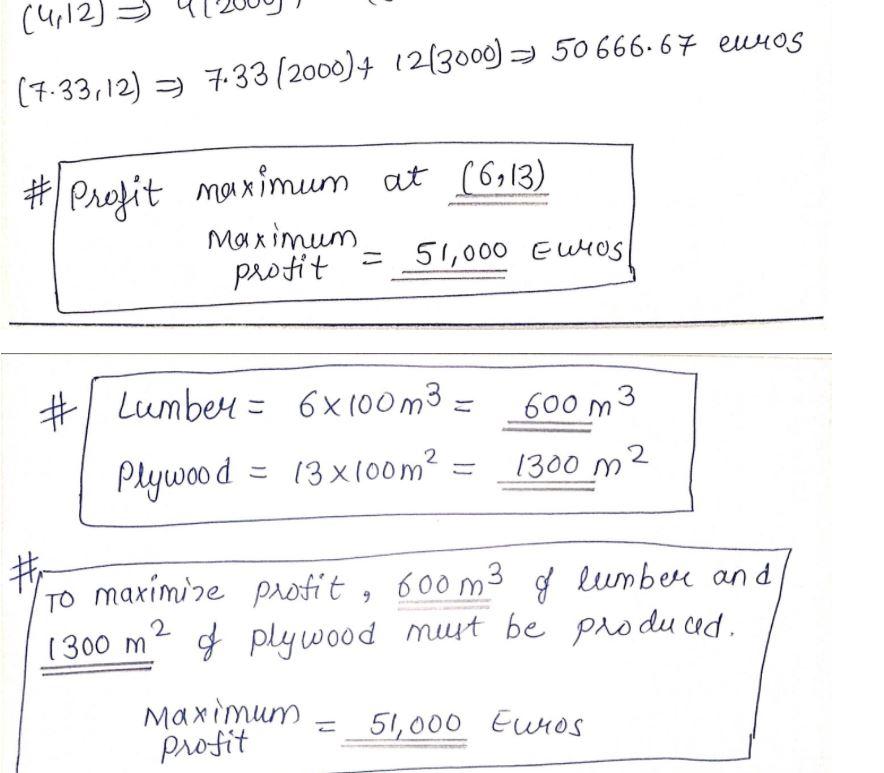 (4,12) ⇒ 4(2000)
(7.33,12) ⇒ 7.33(2000)+ 12(3000) ⇒ 50666.67 euros
# Profit maximum at (6,13)
Maximum profit = 51,000 Euros
# Lumber = 6x100m³ = 600 m³
Plywood = 13x100m² = 1300 m²
# To maximize profit, 600 m³ of lumber and
1300 m² of plywood must be produced.
Maximum profit = 51,000 Euros